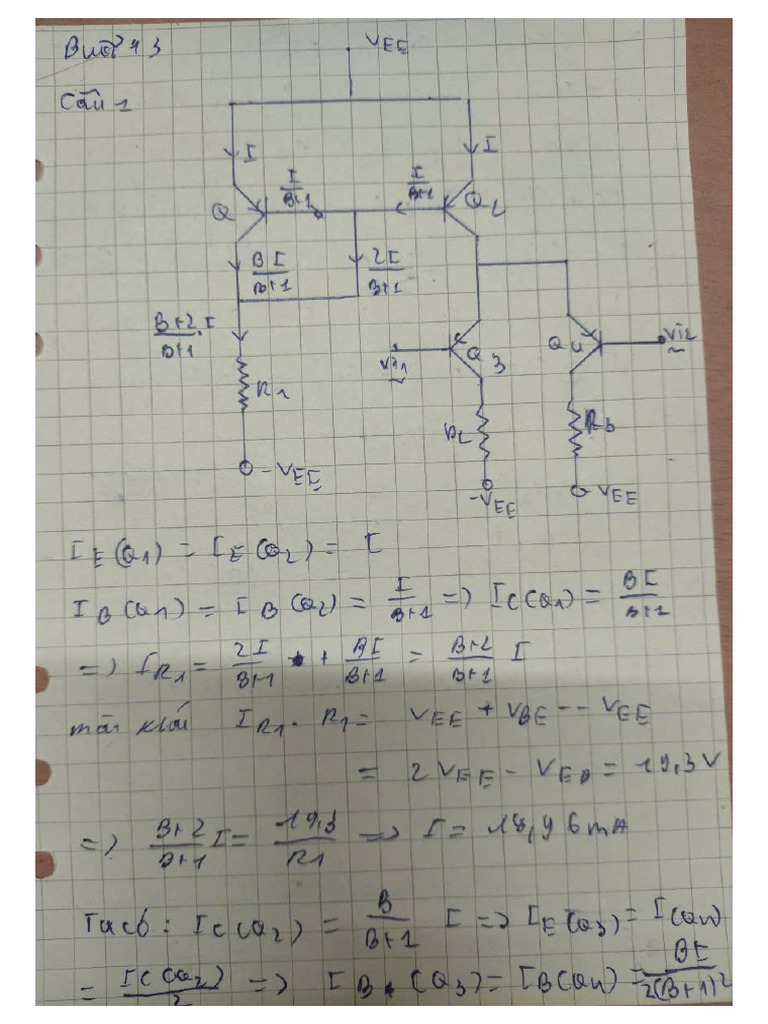 Câu 1
VEE
I
I
I/B+1
I/B+1
Q
Q2
BI/B+1
2I/B+1
B+2/B+1 . I
Vi1
Q3
Q4
Vi2
R1
R2
R3
-VEE
-VEE
-VEE
IE(Q1) = IE(Q2) = I
IB(Q1) = IB(Q2) = I/B+1 => IC(Q1) = BI/B+1
=> IR1 = 2I/B+1 + BI/B+1 = B+2/B+1 I
mặt khác IR1 . R1 = VEE + VBE -- VEE
= 2VEE - VEB = 19,3V
=> B+2/B+1 I = 19,3/R1 => I = 18,96mA
Ta có : IC(Q2) = B/B+1 I => IE(Q3) = I(Q4)
= IC(Q2)/2 => IB (Q3) = IB(Q4) = BI/2(B+1)²